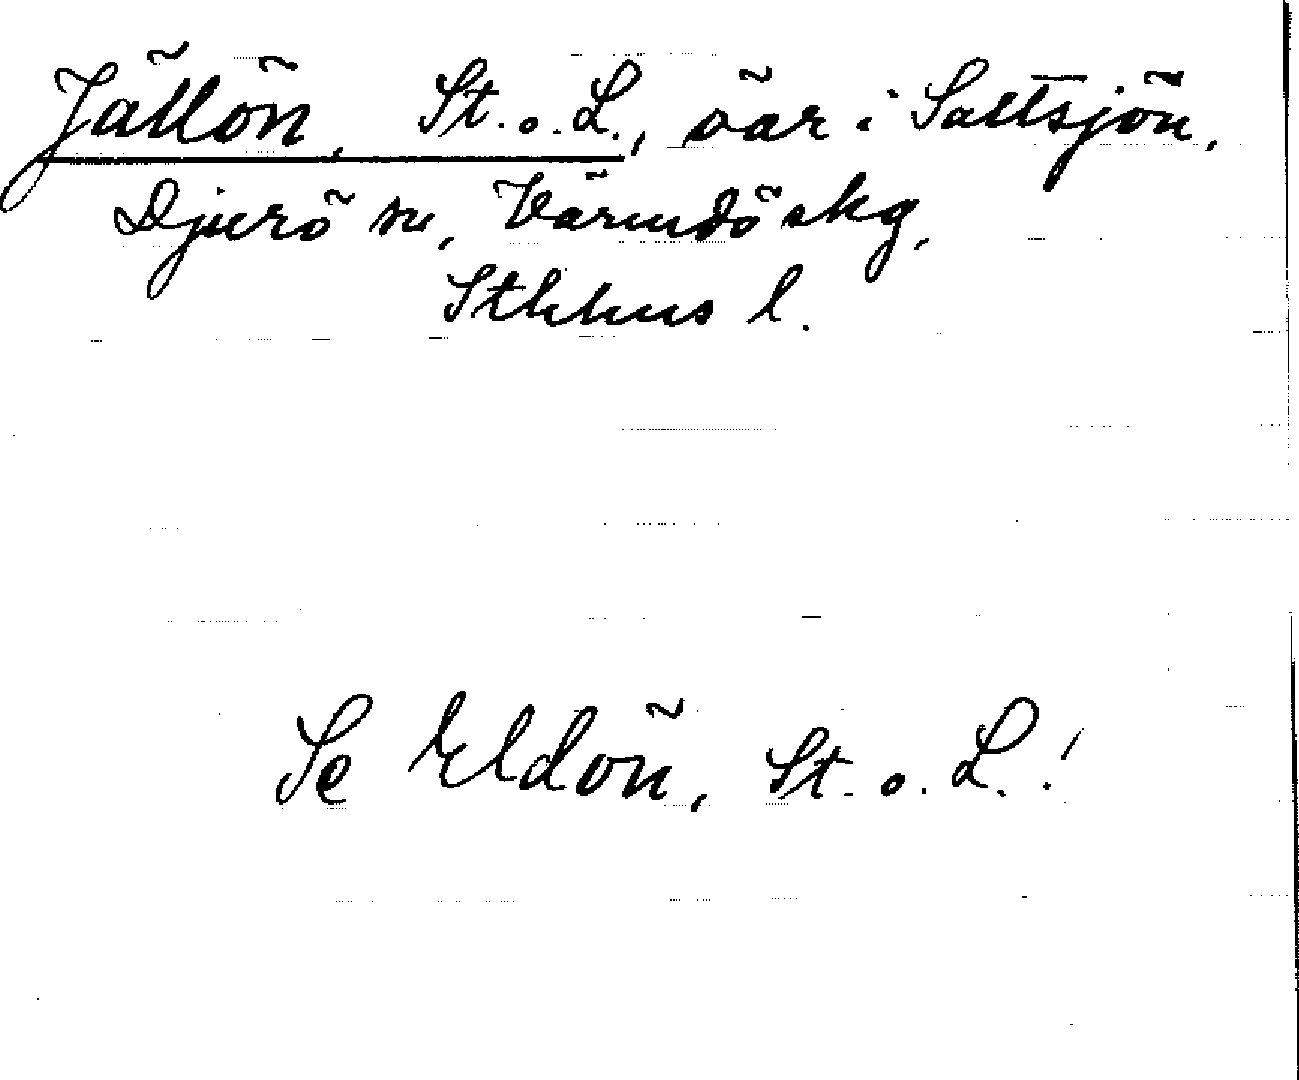 Jällön, St. o. L., öar i Saltsjön,
Djurö sn, Värmdö skg,
Sthlms l.
Se Eldön, St. o. L.!